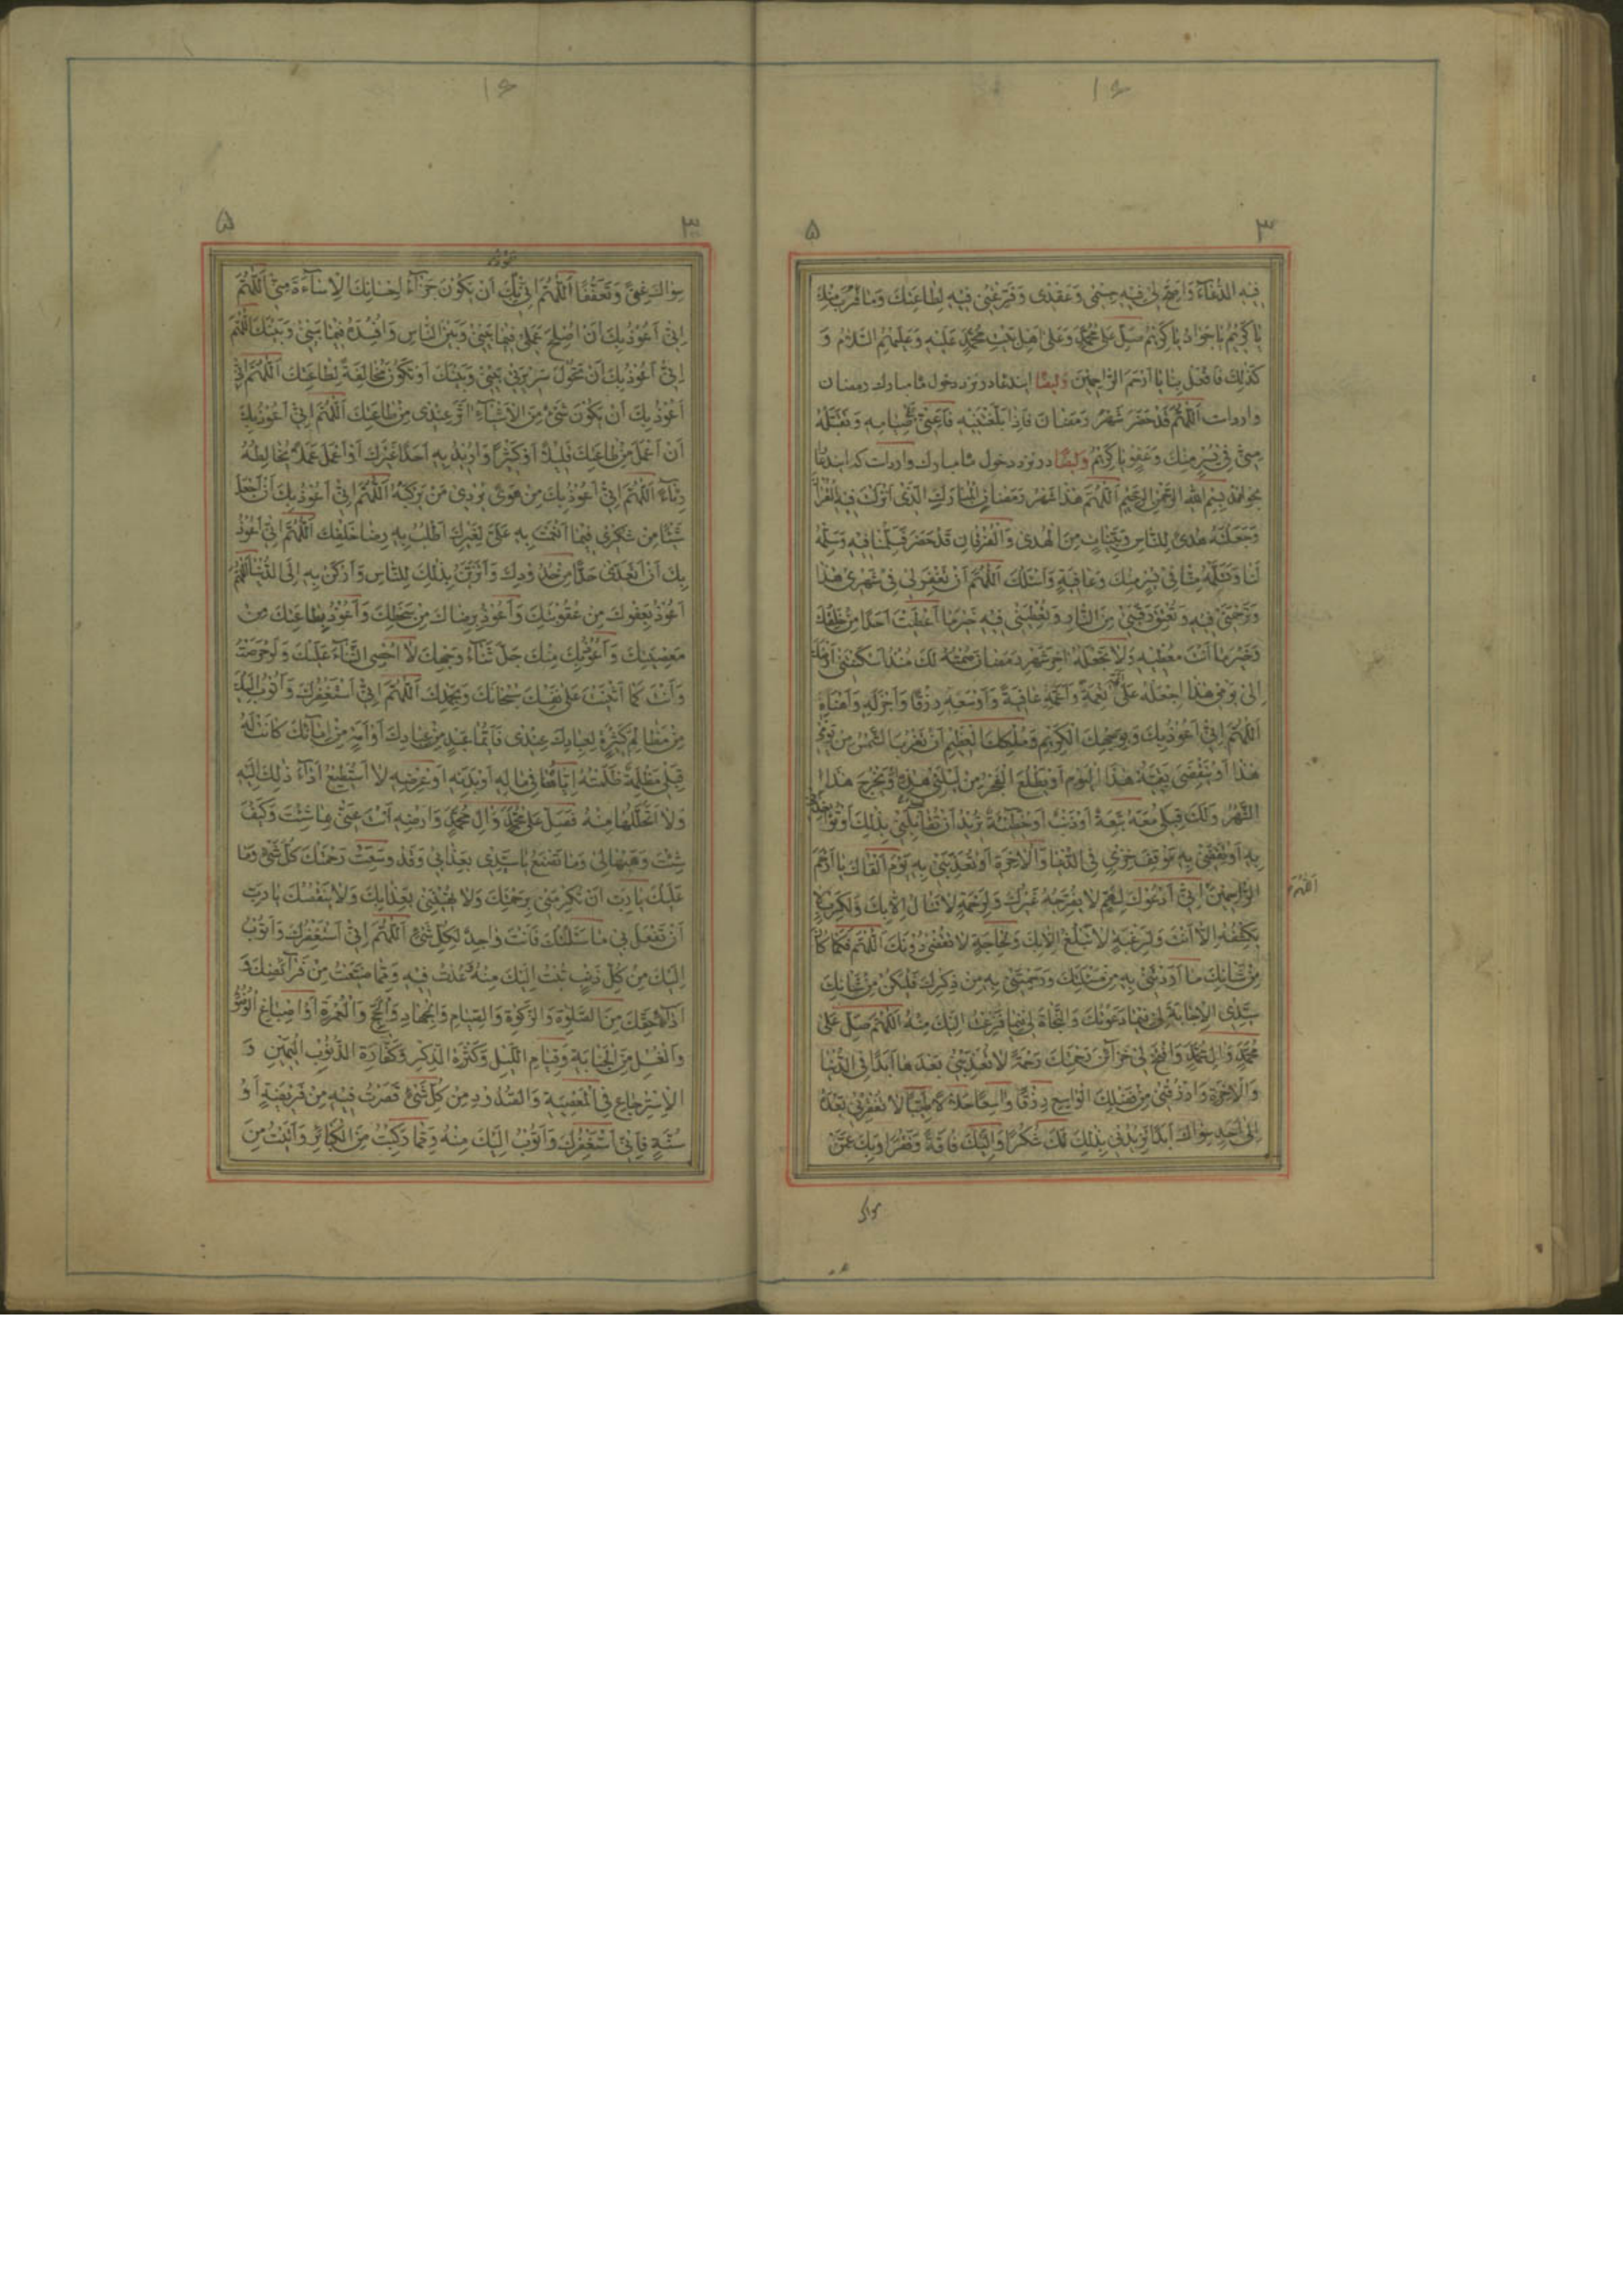 ۱۶
۳ ۵
فیه الدُّعَآءَ وَاَصِحَّ لی فیه جِسْمی وَعَقْلی وَفَرِّغْنی فیه لِطاعَتِكَ وَمَا قَرَّبَ مِنْكَ
یا كَریمُ یا جَوادُ یا كَریمُ صَلِّ عَلی مُحَمَّدٍ وَعَلی اَهْلِ بَیْتِ مُحَمَّدٍ عَلَیْهِ وَعَلَیْهِمُ السَّلامُ وَ
كَذلِكَ فَافْعَلْ بِنا یا اَرْحَمَ الرّاحِمینَ وَایضًا این دعا در نزد دخول ماه مبارك رمضان
وارد است اَللّهُمَّ قَدْ حَضَرَ شَهْرُ رَمَضانَ فَاِذا بَلَّغْتَنیهِ فَاَعِنّی عَلی صِیامِهِ وَتَقَبَّلْهُ
مِنّی فی یُسْرٍ مِنْكَ وَعَفْوٍ یا كَریمُ وَایضًا در نزد دخول ماه مبارك وارد است كه این دعا
بخواند بِسْمِ اللهِ الرَّحْمنِ الرَّحیمِ اَللّهُمَّ هذا شَهْرُ رَمَضانَ الْمُبارَكِ الَّذی اَنْزَلْتَ فیهِ الْقُرْانَ
وَجَعَلْتَهُ هُدیً لِلنّاسِ وَبَیِّناتٍ مِنَ الْهُدی وَالْفُرْقانِ قَدْ حَضَرَ فَسَلِّمْنا فیهِ وَسَلِّمْهُ
لَنا وَتَسَلَّمْهُ مِنّا فی یُسْرٍ مِنْكَ وَعافِیَةٍ وَاَسْئَلُكَ اَللّهُمَّ اَنْ تَغْفِرَ لی فی شَهْری هذا
وَتَرْحَمَنی فیهِ وَتُعْتِقَ رَقَبَتی مِنَ النّارِ وَتُعْطِیَنی فیهِ خَیْرَ ما اَعْطَیْتَ اَحَدًا مِنْ خَلْقِكَ
وَخَیْرَ ما اَنْتَ مُعْطیهِ وَلا تَجْعَلْهُ اخِرَ شَهْرِ رَمَضانَ صُمْتُهُ لَكَ مُنْذُ اَسْكَنْتَنی اَرْضَكَ
اِلی یَوْمی هذا اِجْعَلْهُ عَلَیَّ اَتَمَّهُ نِعْمَةً وَاَعَمَّهُ عافِیَةً وَاَوْسَعَهُ رِزْقًا وَاَجْزَلَهُ وَاَهْنَاَهُ
اَللّهُمَّ اِنّی اَعُوْذُ بِكَ وَبِوَجْهِكَ الْكَریمِ وَمُلْكِكَ الْعَظیمِ اَنْ تَغْرُبَ الشَّمْسُ مِنْ یَوْمی
هذا اَوْ یَنْقَضِیَ بَقِیَّةُ هذَا الْیَوْمِ اَوْ یَطْلُعَ الْفَجْرُ مِنْ لَیْلَتی هذِهِ وَیَخْرُجَ هذَا
الشَّهْرُ وَلَكَ قِبَلی مَعَهُ تَبِعَةٌ اَوْ ذَنْبٌ اَوْ خَطیئَةٌ تُریدُ اَنْ تُقابِلَنی بِذلِكَ اَوْ تُؤاخِذَنی
بِهِ اَوْ تَقِفَنی بِهِ مَوْقِفَ خِزْیٍ فِی الدُّنْیا وَالْاخِرَةِ اَوْ تُعَذِّبَنی بِهِ یَوْمَ اَلْقاكَ یا اَرْحَمَ
الرّاحِمینَ اَللّهُمَّ اِنّی اَدْعُوْكَ لِهَمٍّ لا یُفَرِّجُهُ غَیْرُكَ وَلِرَحْمَةٍ لا تُنالُ اِلّا بِكَ وَلِكَرْبٍ لا
یَكْشِفُهُ اِلّا اَنْتَ وَلِرَغْبَةٍ لا تُبْلَغُ اِلّا بِكَ وَلِحاجَةٍ لا تُقْضی دُوْنَكَ اَللّهُمَّ فَكَما كانَ
مِنْ شَاْنِكَ ما اَرَدْتَنی بِهِ مِنْ مَسْئَلَتِكَ وَرَحِمْتَنی بِهِ مِنْ ذِكْرِكَ فَلْیَكُنْ مِنْ شَاْنِكَ
سَیِّدِی الْاِجابَةُ لی فیما دَعَوْتُكَ وَالنَّجاةُ لی فیما فَزِعْتُ اِلَیْكَ مِنْهُ اَللّهُمَّ صَلِّ عَلی
مُحَمَّدٍ وَالِ مُحَمَّدٍ وَافْتَحْ لی خَزآئِنَ رَحْمَتِكَ رَحْمَةً لا تُعَذِّبُنی بَعْدَها اَبَدًا فِی الدُّنْیا
وَالْاخِرَةِ وَارْزُقْنی مِنْ فَضْلِكَ الْواسِعِ رِزْقًا واسِعًا حَلالًا طَیِّبًا لا تُفْقِرُنی بَعْدَهُ
اِلی اَحَدٍ سِواكَ اَبَدًا تَزیدُنی بِذلِكَ لَكَ شُكْرًا وَاِلَیْكَ فاقَةً وَفَقْرًا وَبِكَ عَمَّنْ
سواك
۱۶
۳ ۵
سِواكَ غِنیً وَتَعَفُّفًا اَللّهُمَّ اِنّی اَعُوْذُ بِكَ اَنْ تَكُوْنَ جَزآءُ اِحْسانِكَ الْاِسآءَةَ مِنّی اَللّهُمَّ
اِنّی اَعُوْذُ بِكَ اَنْ اُصْلِحَ عَمَلی فیما بَیْنی وَبَیْنَ النّاسِ وَاُفْسِدَهُ فیما بَیْنی وَبَیْنَكَ اَللّهُمَّ
اِنّی اَعُوْذُ بِكَ اَنْ تَحُوْلَ سَریرَتی بَیْنی وَبَیْنَكَ اَوْ تَكُوْنَ مُخالِفَةً لِطاعَتِكَ اَللّهُمَّ اِنّی
اَعُوْذُ بِكَ اَنْ یَكُوْنَ شَیْءٌ مِنَ الْاَشْیآءِ اثَرَ عِنْدی مِنْ طاعَتِكَ اَللّهُمَّ اِنّی اَعُوْذُ بِكَ
اَنْ اَعْمَلَ مِنْ طاعَتِكَ قَلیلًا اَوْ كَثیرًا وَاُریدُ بِهِ اَحَدًا غَیْرَكَ اَوْ اَعْمَلَ عَمَلًا یُخالِطُهُ
رِیآءٌ اَللّهُمَّ اِنّی اَعُوْذُ بِكَ مِنْ هَویً یُرْدی مَنْ یَرْكَبُهُ اَللّهُمَّ اِنّی اَعُوْذُ بِكَ اَنْ اَجْعَلَ
شَیْئًا مِنْ شُكْری فیما اَنْعَمْتَ بِهِ عَلَیَّ لِغَیْرِكَ اَطْلُبُ بِهِ رِضا خَلْقِكَ اَللّهُمَّ اِنّی اَعُوْذُ
بِكَ اَنْ اَتَعَدّی حَدًّا مِنْ حُدُوْدِكَ وَاَتَزَیَّنَ بِذلِكَ لِلنّاسِ وَاَرْكَنَ بِهِ اِلَی الدُّنْیا اَللّهُمَّ
اَعُوْذُ بِعَفْوِكَ مِنْ عُقُوْبَتِكَ وَاَعُوْذُ بِرِضاكَ مِنْ سَخَطِكَ وَاَعُوْذُ بِطاعَتِكَ مِنْ
مَعْصِیَتِكَ وَاَعُوْذُ بِكَ مِنْكَ جَلَّ ثَنآءُ وَجْهِكَ لا اُحْصِی الثَّنآءَ عَلَیْكَ وَلَوْ حَرَصْتُ
وَاَنْتَ كَما اَثْنَیْتَ عَلی نَفْسِكَ سُبْحانَكَ وَبِحَمْدِكَ اَللّهُمَّ اِنّی اَسْتَغْفِرُكَ وَاَتُوْبُ اِلَیْكَ
مِنْ مَظالِمَ كَثیرَةٍ لِعِبادِكَ عِنْدی فَاَیُّما عَبْدٍ مِنْ عِبادِكَ اَوْ اَمَةٍ مِنْ اِمآئِكَ كانَتْ لَهُ
قِبَلی مَظْلِمَةٌ ظَلَمْتُهُ اِیّاها فی مالِهِ اَوْ بَدَنِهِ اَوْ عِرْضِهِ لا اَسْتَطیعُ اَدآءَ ذلِكَ اِلَیْهِ
وَلا اَتَحَلَّلُها مِنْهُ فَصَلِّ عَلی مُحَمَّدٍ وَالِ مُحَمَّدٍ وَاَرْضِهِ اَنْتَ عَنّی بِما شِئْتَ وَكَیْفَ
شِئْتَ وَهَبْها لی وَما تَصْنَعُ یا سَیِّدی بِعَذابی وَقَدْ وَسِعَتْ رَحْمَتُكَ كُلَّ شَیْءٍ وَما
عَلَیْكَ یا رَبِّ اَنْ تُكْرِمَنی بِرَحْمَتِكَ وَلا تُهینَنی بِعَذابِكَ وَلا یَنْقُصُكَ یا رَبِّ
اَنْ تَفْعَلَ بی ما سَئَلْتُكَ فَاَنْتَ واجِدٌ لِكُلِّ شَیْءٍ اَللّهُمَّ اِنّی اَسْتَغْفِرُكَ وَاَتُوْبُ
اِلَیْكَ مِنْ كُلِّ ذَنْبٍ تُبْتُ اِلَیْكَ مِنْهُ ثُمَّ عُدْتُ فیهِ وَمِمّا ضَیَّعْتُ مِنْ فَرآئِضِكَ وَ
اَدآءِ حَقِّكَ مِنَ الصَّلوةِ وَالزَّكوةِ وَالصِّیامِ وَالْجِهادِ وَالْحَجِّ وَالْعُمْرَةِ وَاِسْباغِ الْوُضُوْءِ
وَالْغُسْلِ مِنَ الْجَنابَةِ وَقِیامِ اللَّیْلِ وَكَثْرَةِ الذِّكْرِ وَكَفّارَةِ الْیَمینِ وَ
الْاِسْتِرْجاعِ فِی الْمَعْصِیَةِ وَالصُّدُوْدِ مِنْ كُلِّ شَیْءٍ قَصَّرْتُ فیهِ مِنْ فَریضَةٍ اَوْ
سُنَّةٍ فَاِنّی اَسْتَغْفِرُكَ وَاَتُوْبُ اِلَیْكَ مِنْهُ وَمِمّا رَكِبْتُ مِنَ الْكَبآئِرِ وَاَتَیْتُ مِنَ